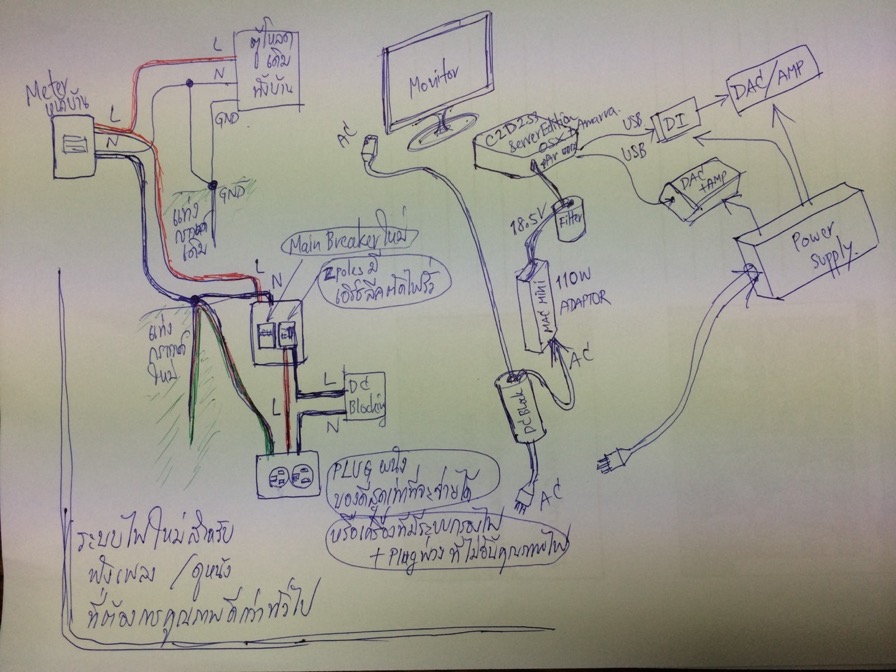 Meter
หน้าบ้าน
L
N
L
N
GND
ตู้โหลด
เดิม
ทั้งบ้าน
GND
แท่ง
กราวด์
เดิม
Monitor
AC
C2D253
Server Edition
OSX + Amarra
USB
USB
DI
DAC/AMP
DAC
+AMP
Power
Supply.
18.5V
Filter
MAC mini
110W
ADAPTOR
AC
DC Block
AC
Main Breaker ใหม่
2 poles มี
L
N
แท่ง
กราวด์
ใหม่
L
N
DC
Blocking
L
PLUG ผนัง
ของดีสุดเท่าที่จะจ่ายได้
หรือเครื่องที่มีระบบกรองไฟ
+ Plug พ่วง ที่ไม่อั้นคุณภาพไฟ
ระบบไฟใหม่สำหรับ
ฟังเพลง / ดูหนัง
ที่ต้องการคุณภาพดีกว่าทั่วไป